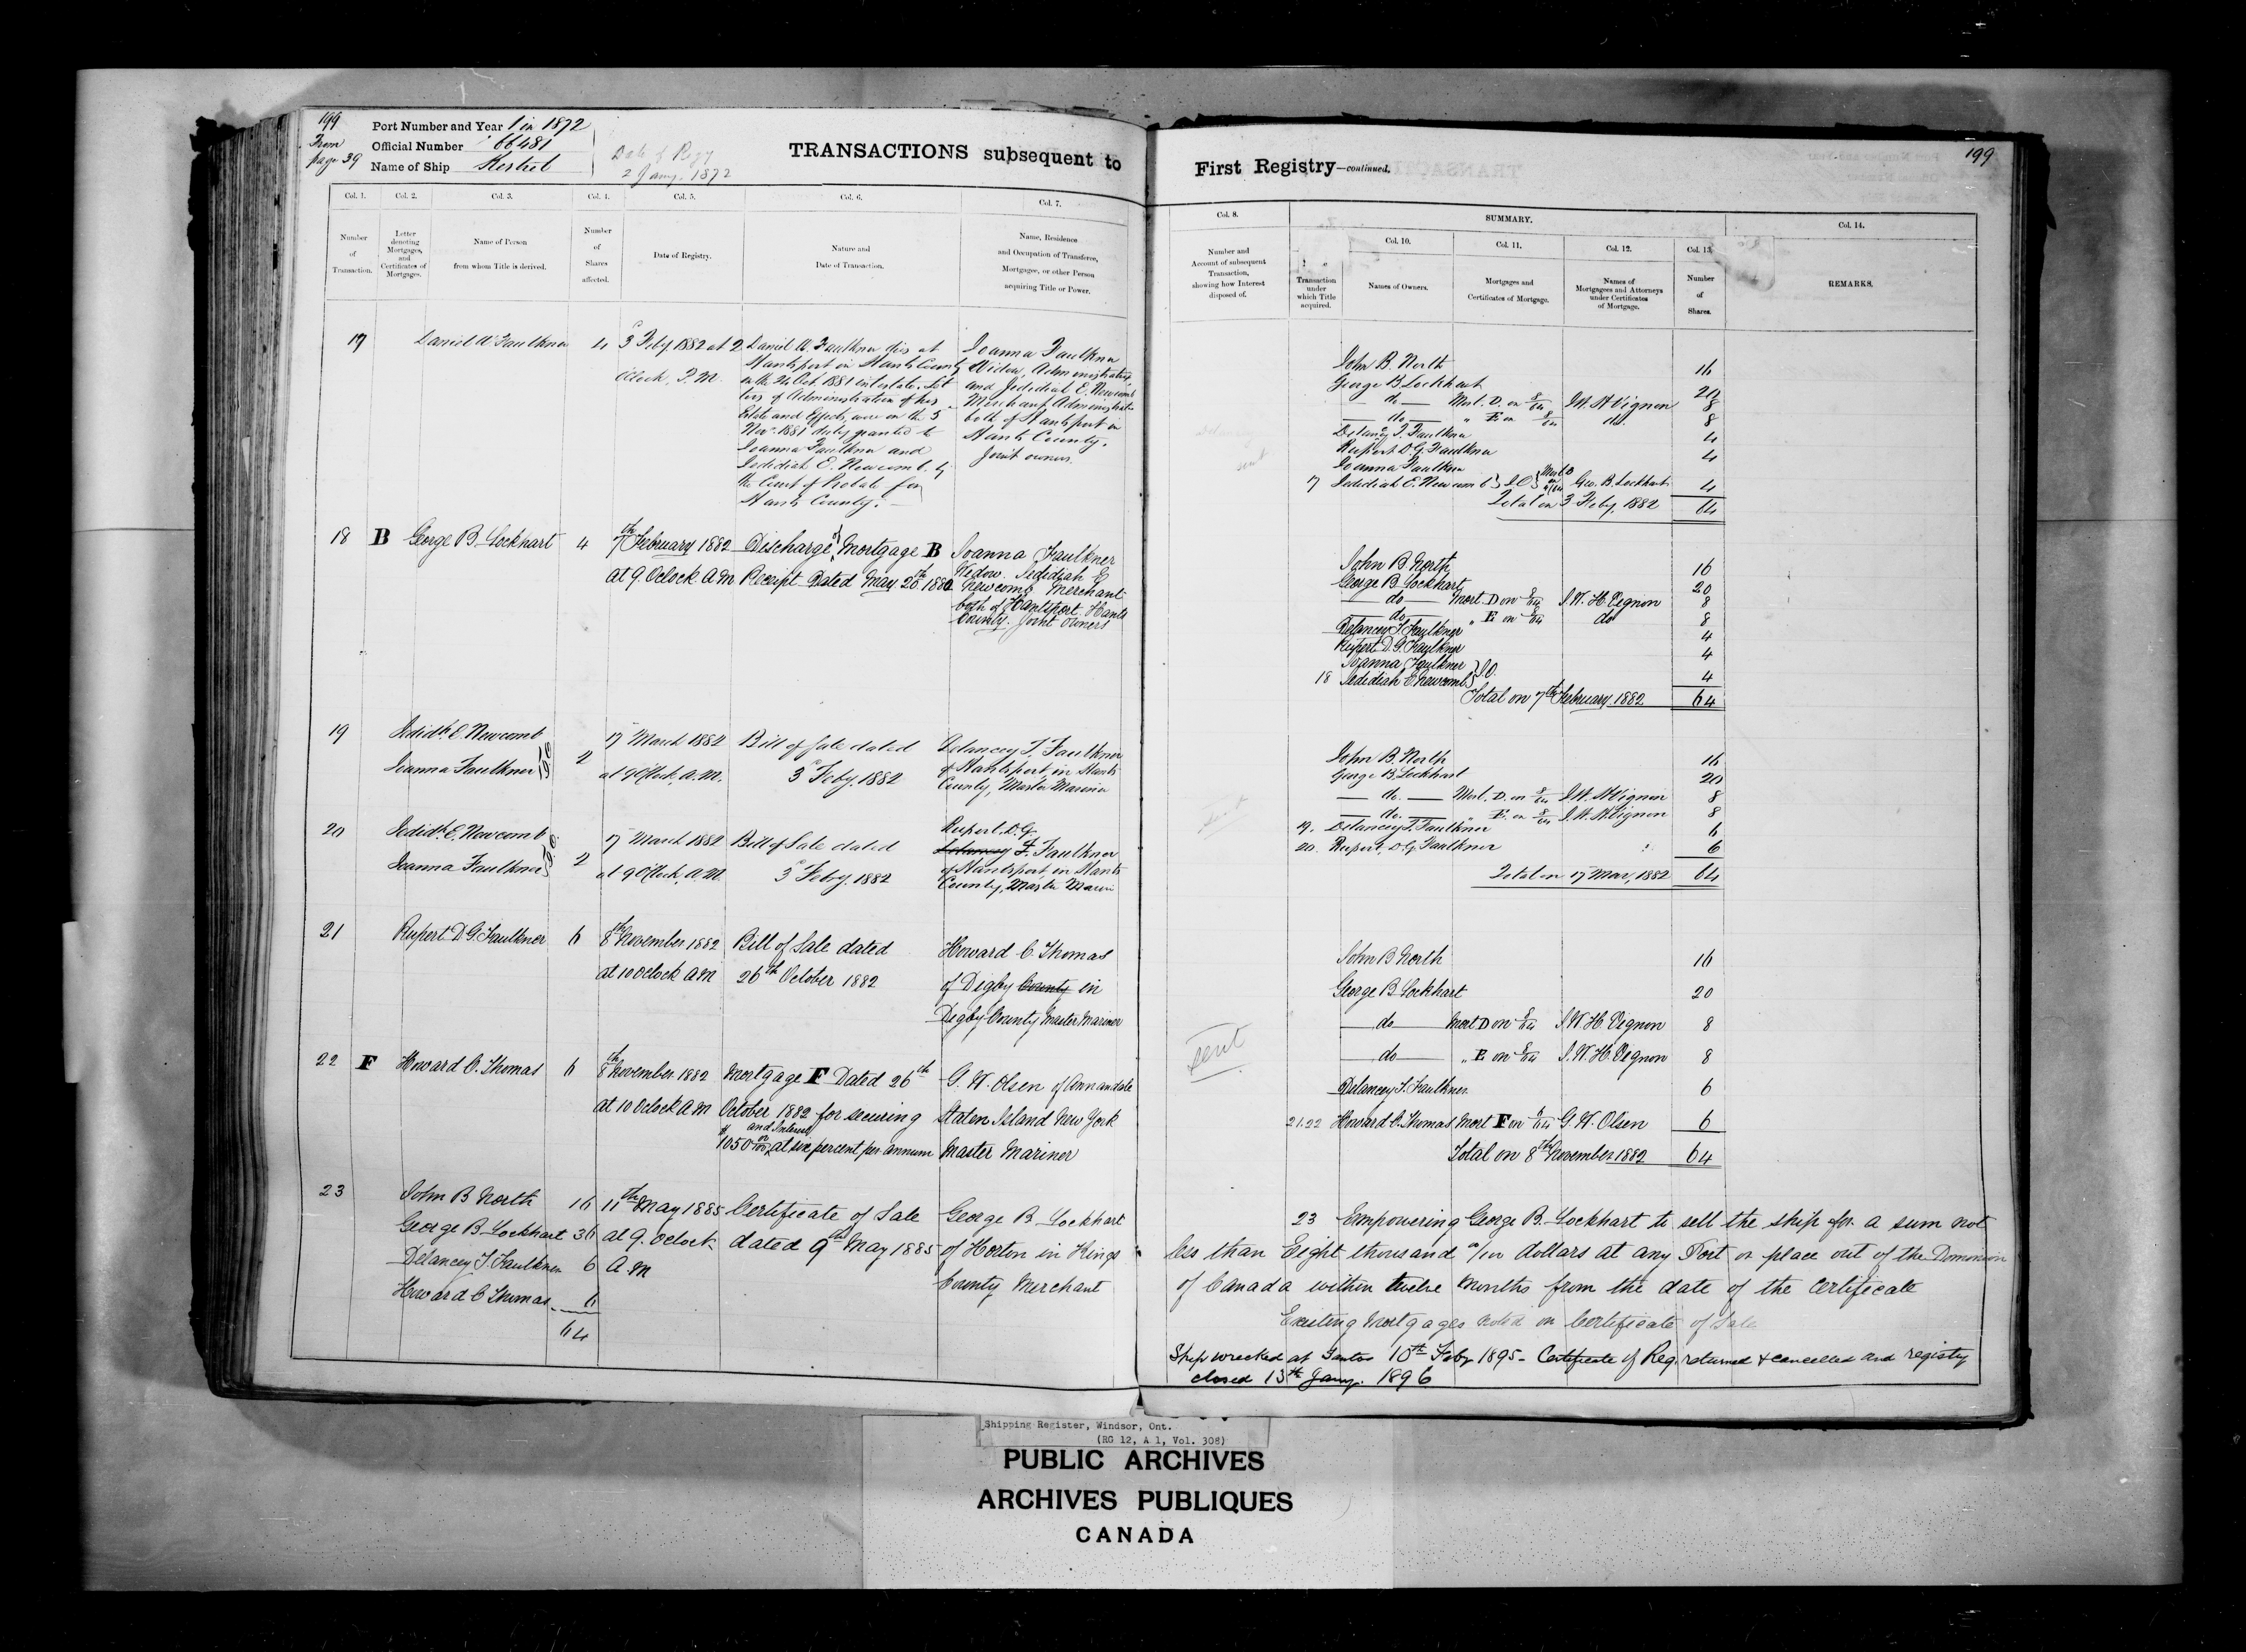 199
From
page 39
Port Number and Year 1 in 1872
Official Number 66481
Name of Ship
Date of Regy
2 Jany. 1872
TRANSACTIONS subsequent to
First Registry—continued.
199
Col. 1.
Col. 2.
Col. 3.
Col. 4.
Col. 5.
Col. 6.
Col. 7.
Number of Transaction.
Letter denoting Mortgages, and Certificates of Mortgages.
Name of Person from whom Title is derived.
Number of Shares affected.
Date of Registry.
Nature and Date of Transaction.
Name, Residence and Occupation of Transferee, Mortgagee, or other Person acquiring Title or Power.
Col. 8.
SUMMARY.
Col. 14.
Col. 10.
Col. 11.
Col. 12.
Col. 13.
Number and Account of subsequent Transaction, showing how Interest disposed of.
Transaction under which Title acquired.
Names of Owners.
Mortgages and Certificates of Mortgage.
Names of Mortgagees and Attorneys under Certificates of Mortgage.
Number of Shares.
REMARKS.
17 Daniel W Faulkner 4
3 Feby 1882 at 2
Oclock, P.M.
Daniel W. Faulkner dies at
Hantsport in Hants County
on the 24 Oct. 1881 intestate. Let
ters of Administration of his
Estate and Effects, were on the 5
Nov. 1881 duly granted to
Joanna Faulkner and
Jedidiah E. Newcomb, by
the Court of Probate for
Hants County.
Joanna Faulkner
Widow, Administratrix
and Jedidiah E. Newcomb
Merchant Administrator
both of Hantsport in
Hants County.
Joint owners.
John B. North 16
George B. Lockhart 20
do Mort. D. on 8/64 J.W.H Vignon 8
do " E on 8/64 do. 8
Delancey T. Faulkner 4
Rupert D.G. Faulkner 4
Joanna Faulkner
17 Jedidiah E. Newcomb } J.O } Mort B on 4/64 Geo. B. Lockhart 4
Total on 3 Feby, 1882 64
18 B George B. Lockhart 4
7th February 1882
at 9. Oclock A M
Discharge of Mortgage B
Receipt Dated May 20th 1880
Joanna Faulkner
Widow. Jedidiah E
Newcomb Merchant
both of Hantsport Hants
County. Joint Owners
John B North 16
George B Lockhart 20
do Mort D on 8/64 J.W.H. Vignon 8
do " E on 8/64 do 8
Delancey T. Faulkner 4
Rupert D.G. Faulkner 4
Joanna Faulkner
18 Jedidiah E Newcomb } J.O. 4
Total on 7th February 1882 64
19 Jedidh. E. Newcomb
Joanna Faulkner } J.O 2
17 March 1882
at 9 Oclock, A.M.
Bill of Sale dated
3 Feby. 1882
Delancey T. Faulkner
of Hantsport, in Hants
County, Master Mariner
John B. North 16
George B. Lockhart 20
do. Mort. D. on 8/64 J.W.H Vignon 8
do. " E. on 8/64 J.W.H Vignon 8
19. Delancey T. Faulkner 6
20. Rupert, D.G. Faulkner 6
Total on 17 Mar, 1882 64
20 Jedidh. E. Newcomb
Joanna Faulkner } J.O. 2
17 March 1882
at 9 Oclock, A.M.
Bill of Sale dated
3 Feby. 1882
Rupert. D.G.
Delancey T. Faulkner
of Hantsport, in Hants
County, Master Marin
21 Rupert D G. Faulkner 6
8th November 1882
at 10 Oclock A M
Bill of Sale dated
26th October 1882
Howard C. Thomas
of Digby County in
Digby County Master Mariner
22 F Howard C. Thomas 6
8th November 1882
at 10 Oclock A M
Mortgage F Dated 26th
October 1882 for securing
and Interest
$1050 00/100 at six percent, per annum
G. W. Olsen of Annandale
Staten Island New York
Master Mariner
sent
John B North 16
George B Lockhart 20
do Mort D on 8/64 J.W.H. Vignon 8
do " E on 8/64 J.W.H. Vignon 8
Delancey T. Faulkner 6
21.22 Howard C. Thomas Mort F on 6/64 G. W. Olsen 6
Total on 8th November 1882 64
23 John B North 16
George B Lockhart 36
Delancey T. Faulkner 6
Howard C Thomas 6
64
11th May 1885
at 9. Oclock
A M
Certificate of Sale
dated 9th May 1885
George B Lockhart
of Horton in Kings
County Merchant
23 Empowering George B. Lockhart to sell the ship for a sum not
less than Eight thousand 00/100 dollars at any Port or place out of the Dominion
of Canada within twelve Months from the date of the Certificate
Existing Mortgages noted on Certificate of Sale
Ship wrecked at Santos 10th Feby 1895 - Certificate of Reg. returned & cancelled and registry
closed 13th Jany. 1896
Shipping Register, Windsor, Ont.
(RG 12, A 1, Vol. 308)
PUBLIC ARCHIVES
ARCHIVES PUBLIQUES
CANADA